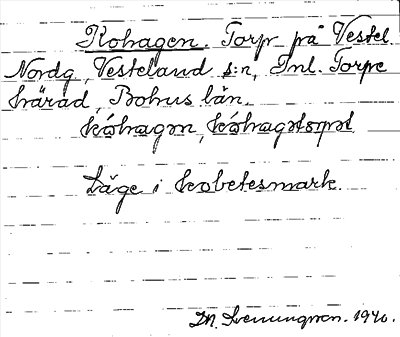 Kohagen. Torp på Vestel
Nordg, Vesteland s:n, Inl. Torpe
härad, Bohus län.
kóhagən, kóhagstorpət
Läge i kobetesmark.
1940.